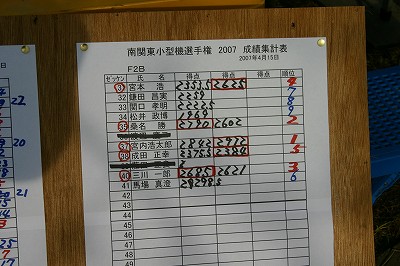 南関東小型機選手権 2007 成績集計表
2007年4月15日
F2B
ゼッケン 氏 名 得点 得点 得点 順位
31 宮本 浩 2353.5 2625 4
32 鎌田 昌実 2259 7
33 関口 孝明 2222.5 8
34 松井 政博 1969 9
35 桑名 勝 2790 2602 2
37 宮内浩太郎 2842 2972 1
38 成田 正幸 2375.5 2384 5
40 三川 一郎 2685 2621 3
41 馬場 真澄 6
42
43
44
45
46
47
48
49
50
22
20
21